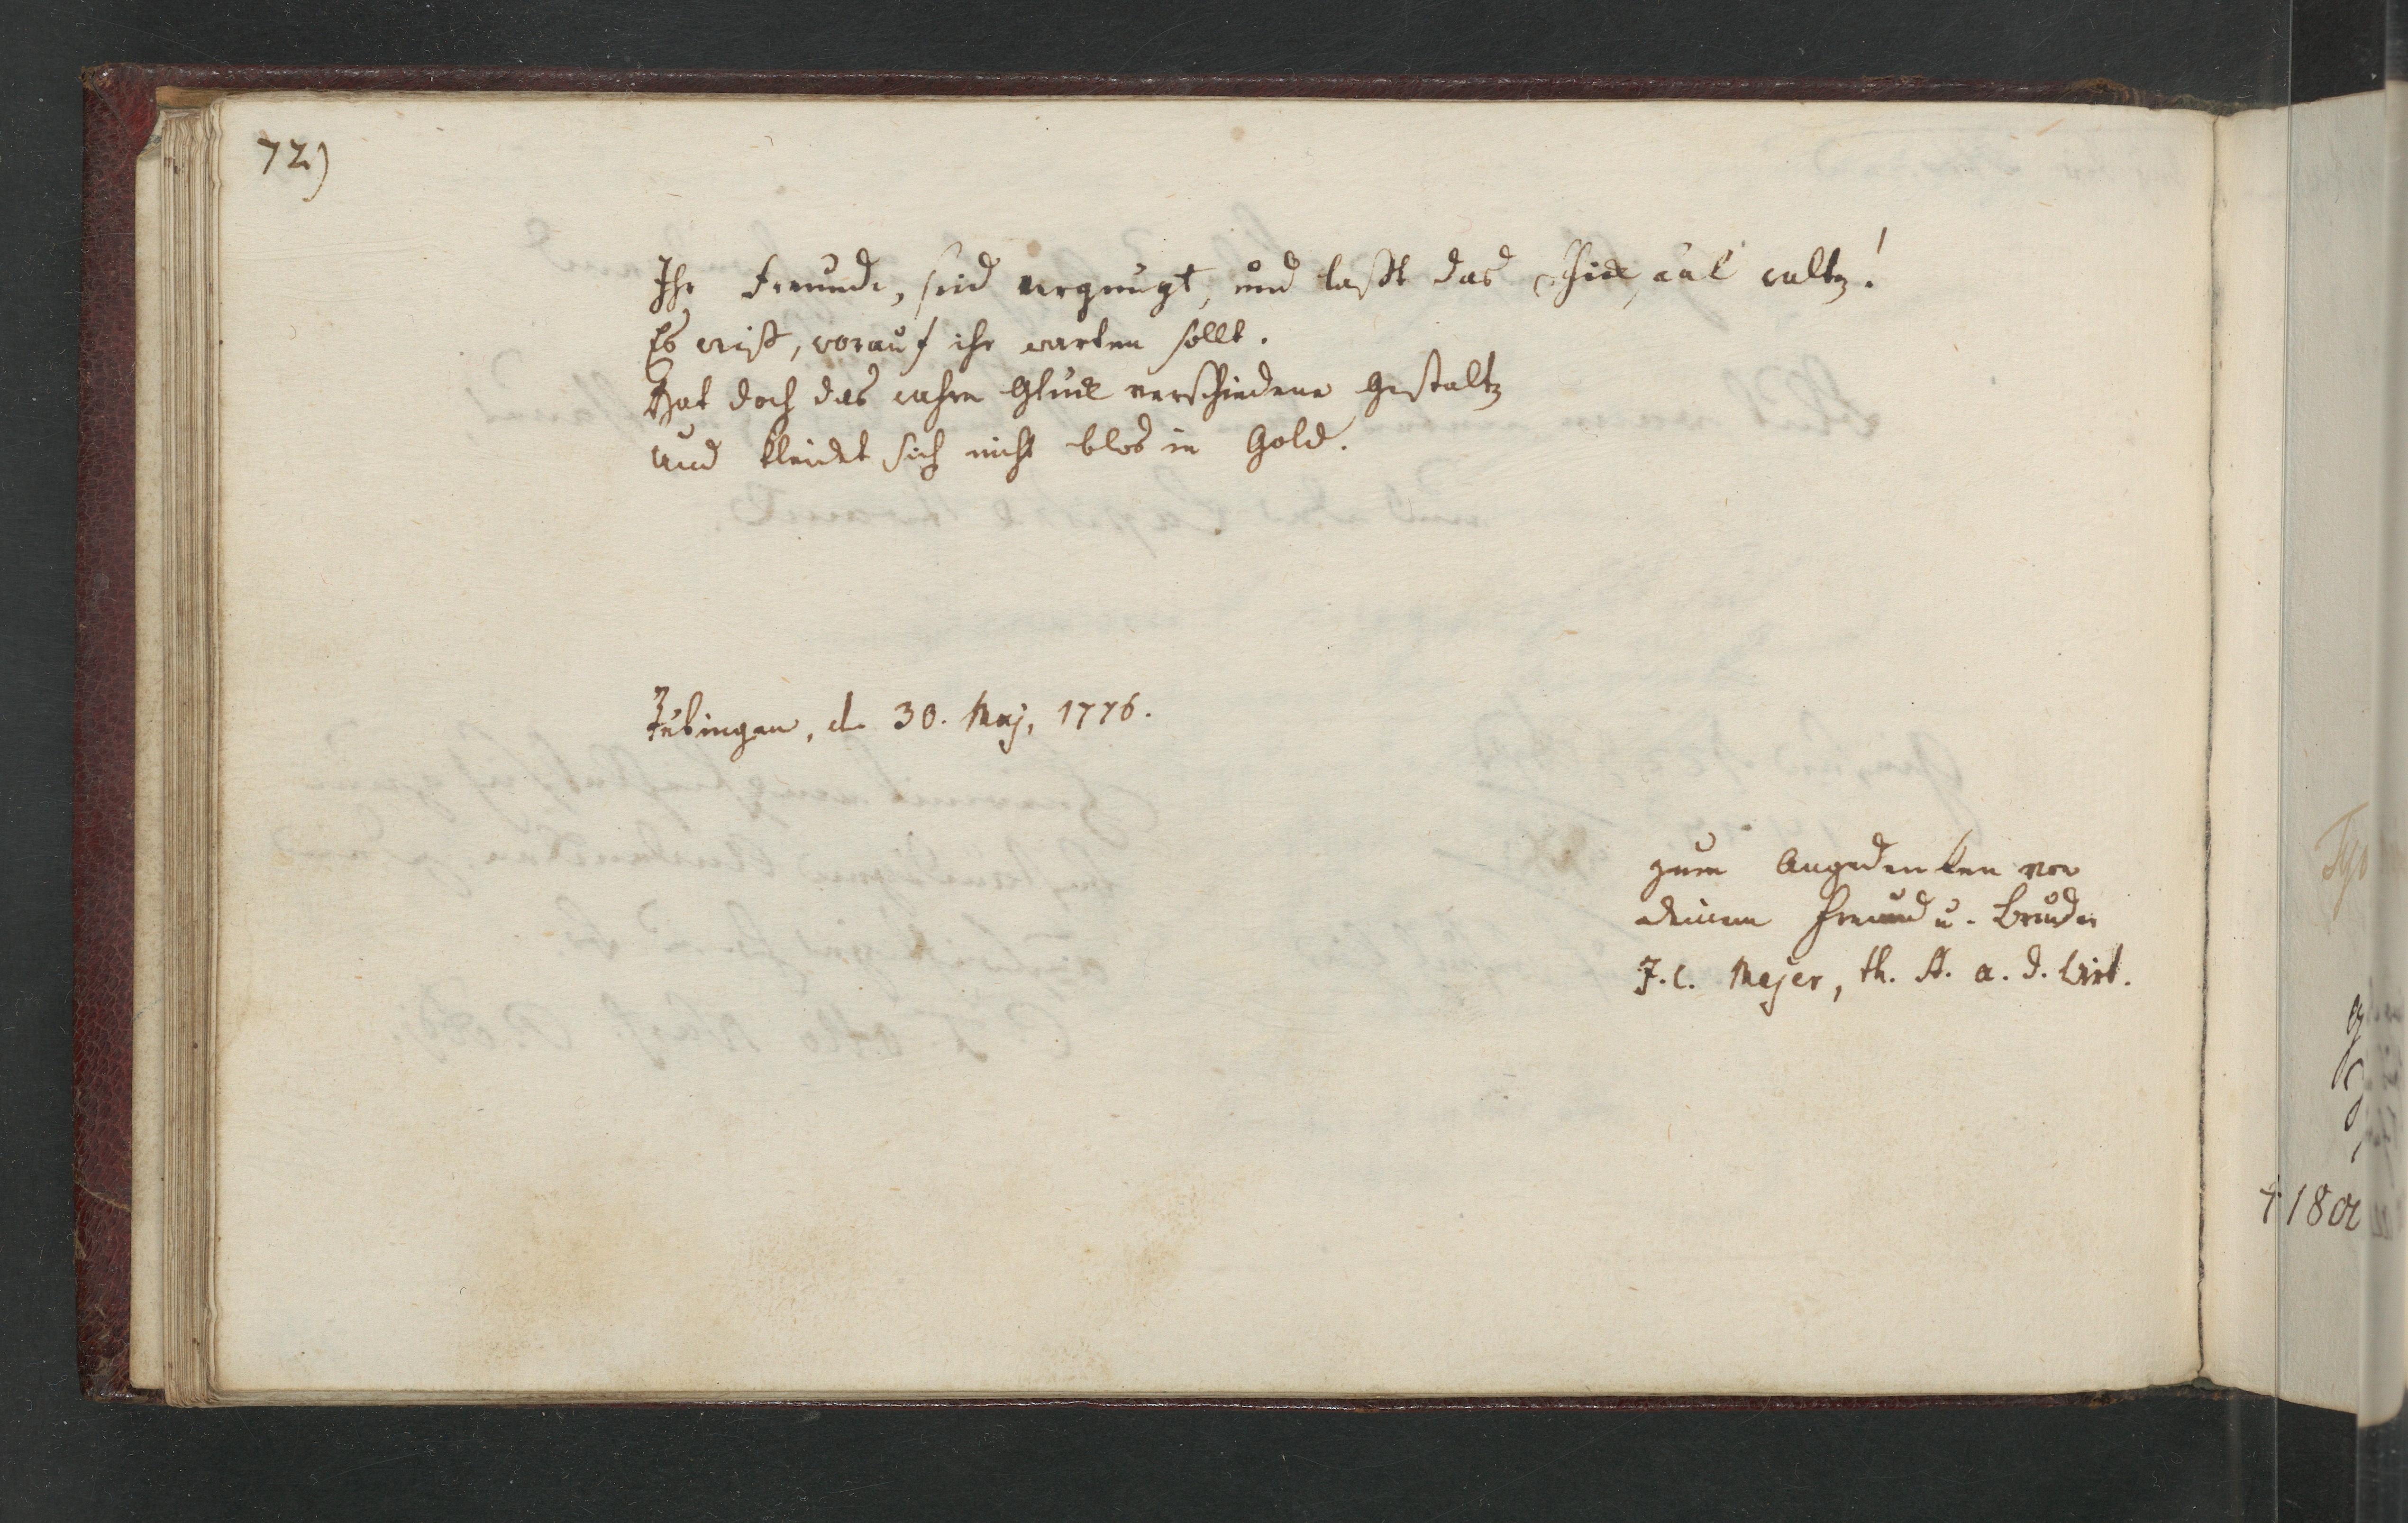 72)
Ihr Freunde, seid vergnügt, und laßt das Schicksal walten!
Es weiß, worauf ihr warten sollt.
Hat doch das wahre Glück verschiedene Gestalten
und kleidet sich nicht blos in Gold.
Tübingen, d. 30. Maj, 1776.
zum Angedenken von
deinem Freund u. Bruder
J. C. Majer, th. St. a. d. Wirt.
† 180